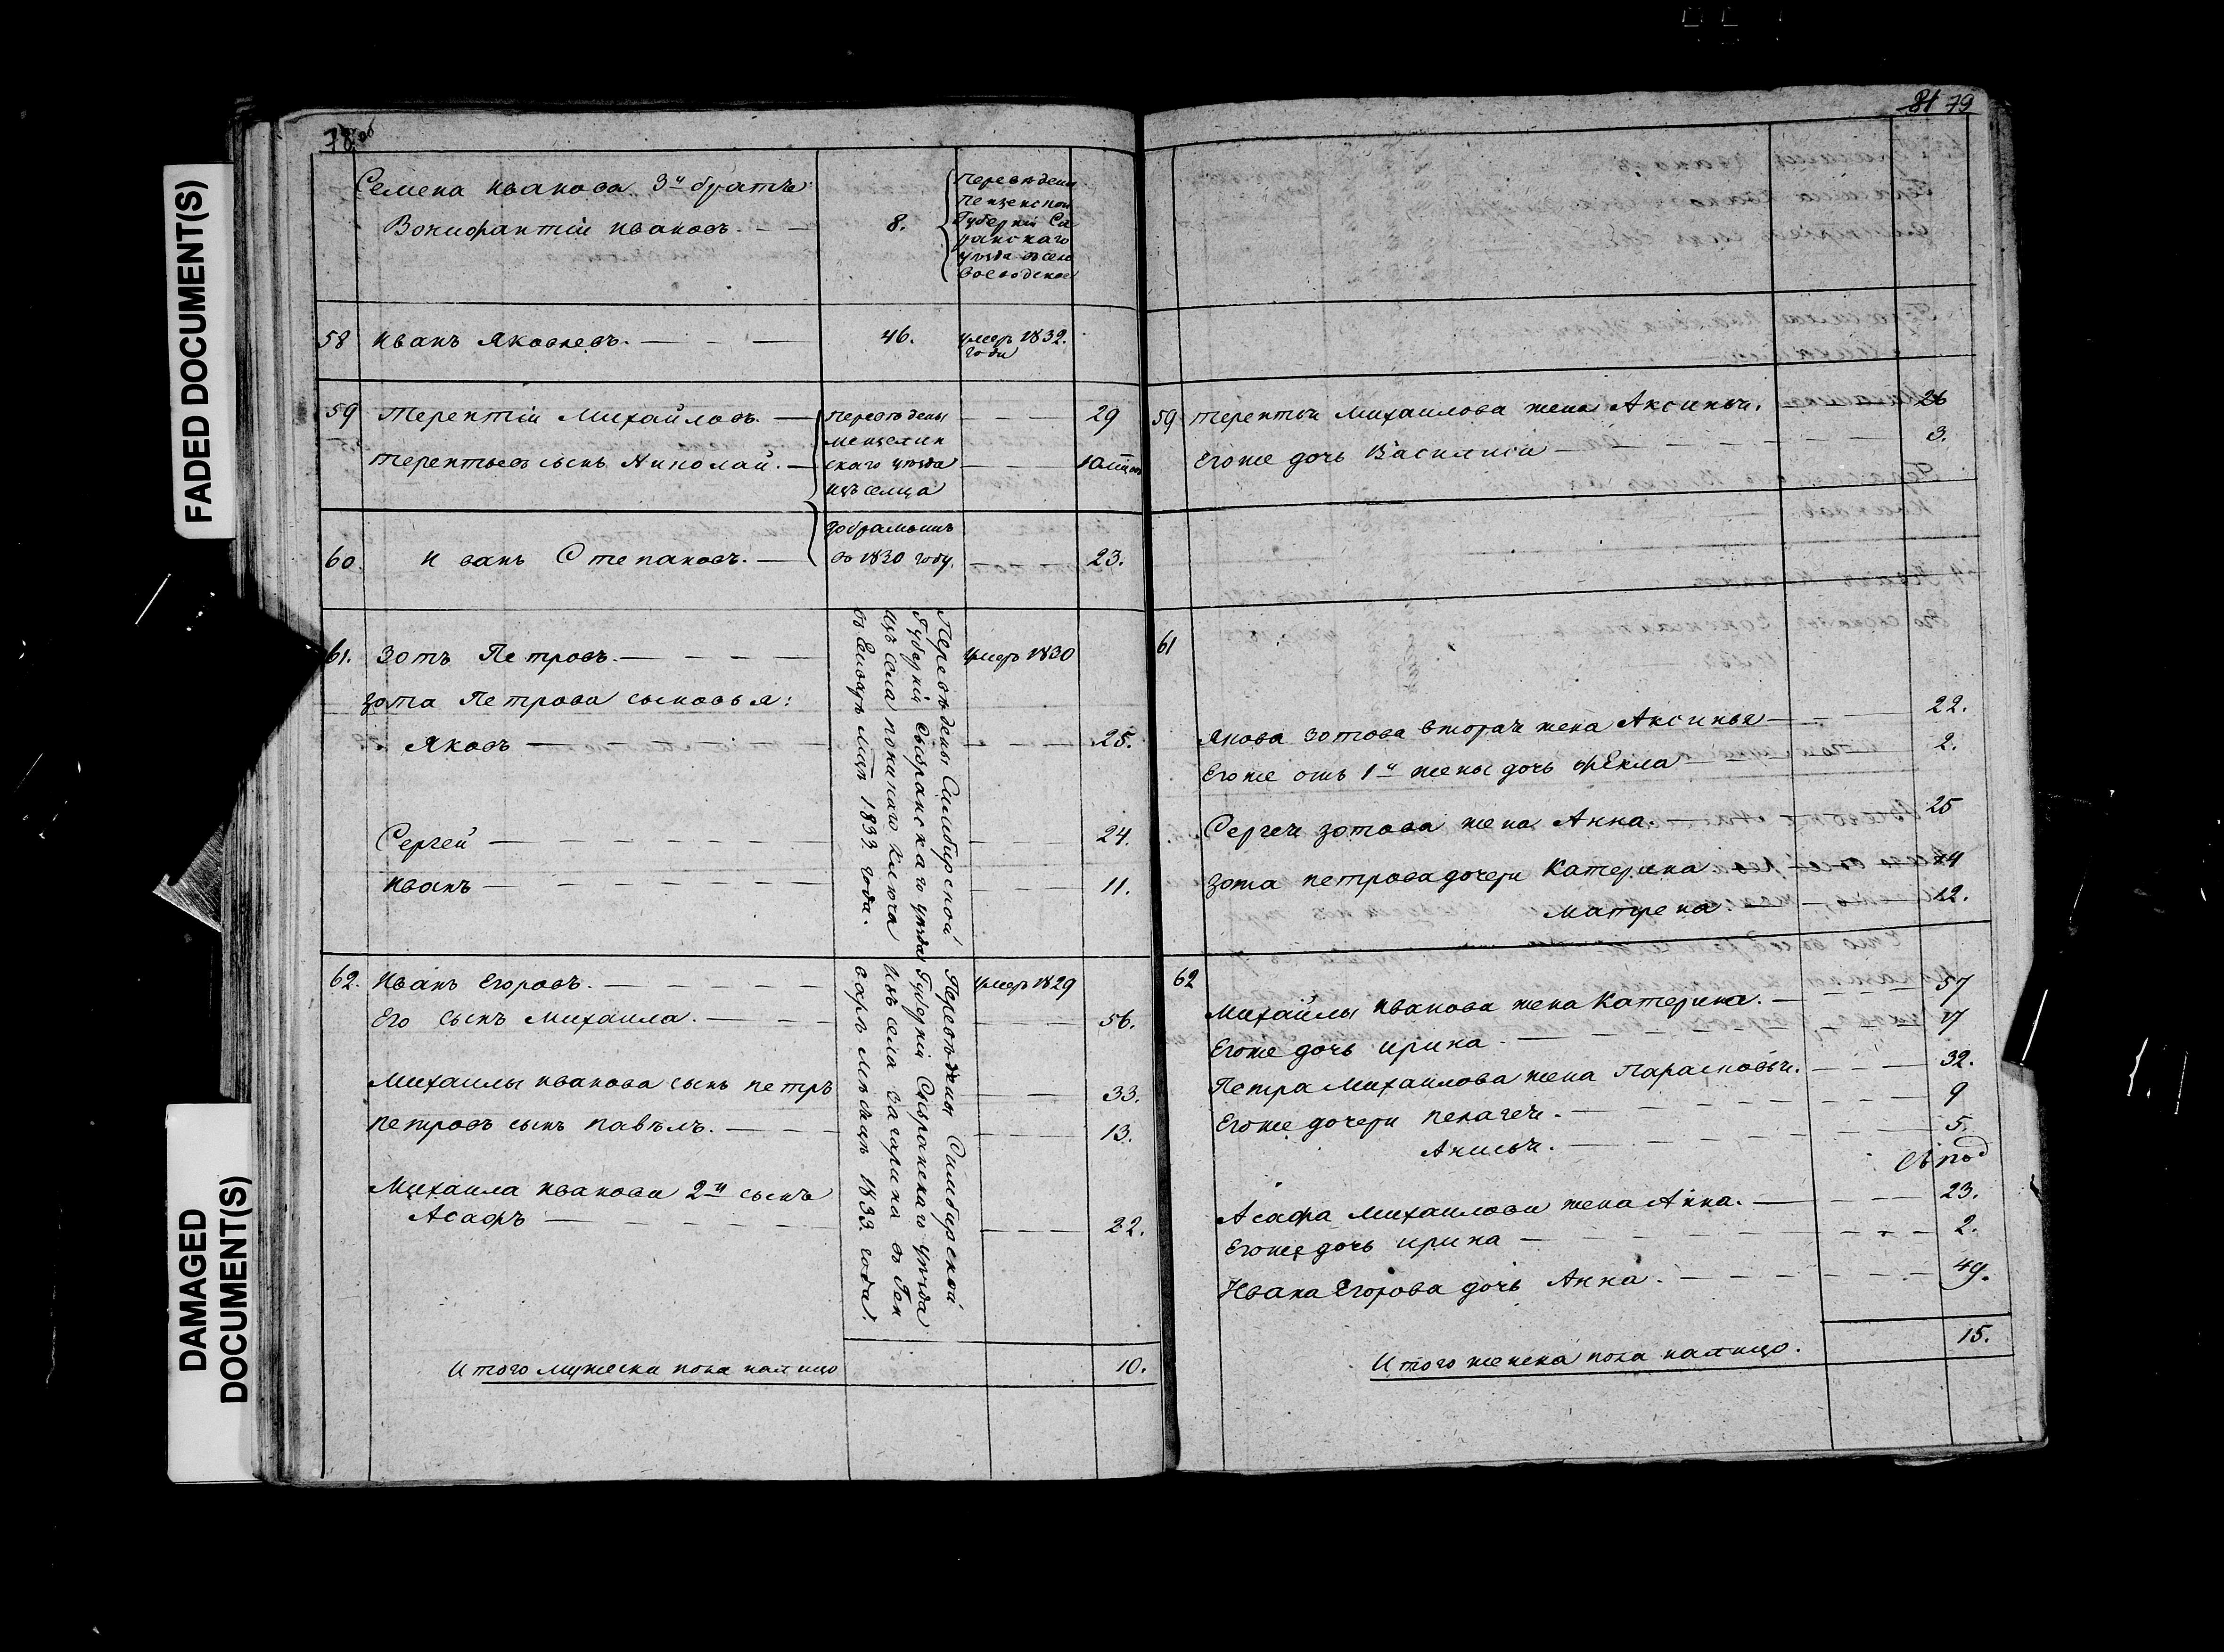 FADED DOCUMENT(S)
DAMAGED
DOCUMENT(S)
78 об
Семена Иванова 3й братъ
Вонифантій Ивановъ.
8.
Переведенъ
Пензенской
Губерніи Са
ранскаго
уѣзда в село
Воеводское
58 Иванъ Яковлевъ. 46. умеръ 1832.
года
59 Терентій Михайловъ. 29
Терентьевъ сынъ Николай.
переведены
мензелин
скаго уѣзда
изъ сельца
60. Иванъ Степановъ. 23.
во 1830 году.
61. Зотъ Петровъ. умеръ 1830
Зота Петрова сыновья:
Яковъ 25.
Сергей 24.
Иванъ 11.
Переведены Симбирской
Губерніи Сызранскаго уѣзда
изъ села ключа
въ Генварѣ мцѣ 1833. года.
62. Иванъ Егоровъ. умеръ 1829
Его сынъ Михаила. 56.
Михаилы Иванова сынъ петръ 33.
петровъ сынъ павѣлъ. 13.
Михаила Иванова 2й сынъ
Асафъ 22.
Переведены Симбирской
Губерніи Сызранскаго уѣзда
изъ села Загарина в Ген
варѣ Мѣсяцѣ 1833. года.
Итого мужеска пола налицо 10.
81 79
59 терентія Михаилова жена Аксинья. 26
Егоже дочь Василиса 3.
61
Якова Зотова вторая жена Аксинья 22.
Егоже отъ 1й жены дочь фекла 2.
Сергея зотова жена Анна. 25
Зота петрова дочери Катерина 14
Матрена. 12.
62
Михайлы Иванова жена Катерина. 57
Егоже дочь ирина. 17
Петра Михаилова жена Парасковья. 32.
Егоже дочери пелагея. 9
Анисья. 5.
Асафа Михаилова жена Анна. 23.
Егоже дочь ирина 2.
Ивана Егорова дочь Анна. 49.
Итого женска пола налицо. 15.